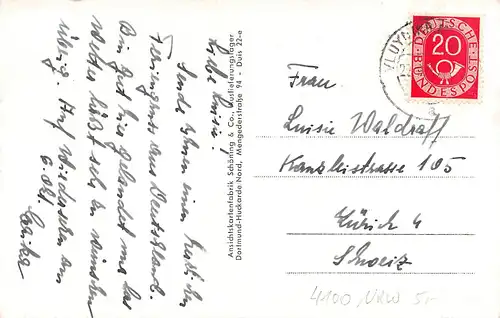 Liebe Luisie!
Sende Ihnen einen herzlichen
Feriengruss aus Deutschland.
Bin gut hier gelandet nur das
Wetter lässt sehr zu wünschen
übrig. Auf Wiedersehen am
6. Okt.
Ansichtskartenfabrik Schöning & Co., Auslieferungslager
Dortmund-Huckarde Nord, Mengederstraße 94 - Duis 22-e
VLUYN
DEUTSCHE
BUNDESPOST
20
Frau
Luisie Waldraff
Kanzleistrasse 105
Zürich 4
Schweiz
4100, NRW 5,-